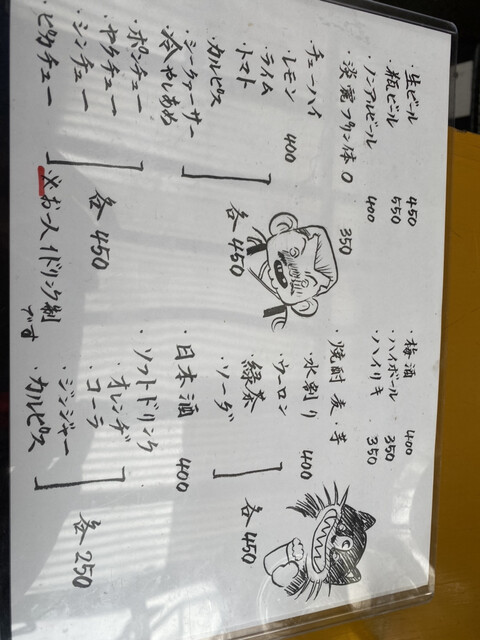 ・生ビール 450
・瓶ビール 550
・ノンアルビール 400
・淡麗プリン体0 350
・チューハイ
レモン 400
・ライム
トマト
・カルピス
・シークァーサー
・冷やしあめ
各450
・ポンチュー
・ヤクチュー
・シンチュー
・ピカチュー
各450
※お一人1ドリンク制
です
・梅酒 400
・ハイボール 350
・ハイリキ 350
・焼酎 麦・芋
・水割り 400
・ウーロン
・緑茶
・ソーダ
各450
・日本酒 400
・ソフトドリンク
・オレンジ
・コーラ
・ジンジャー
・カルピス
各250